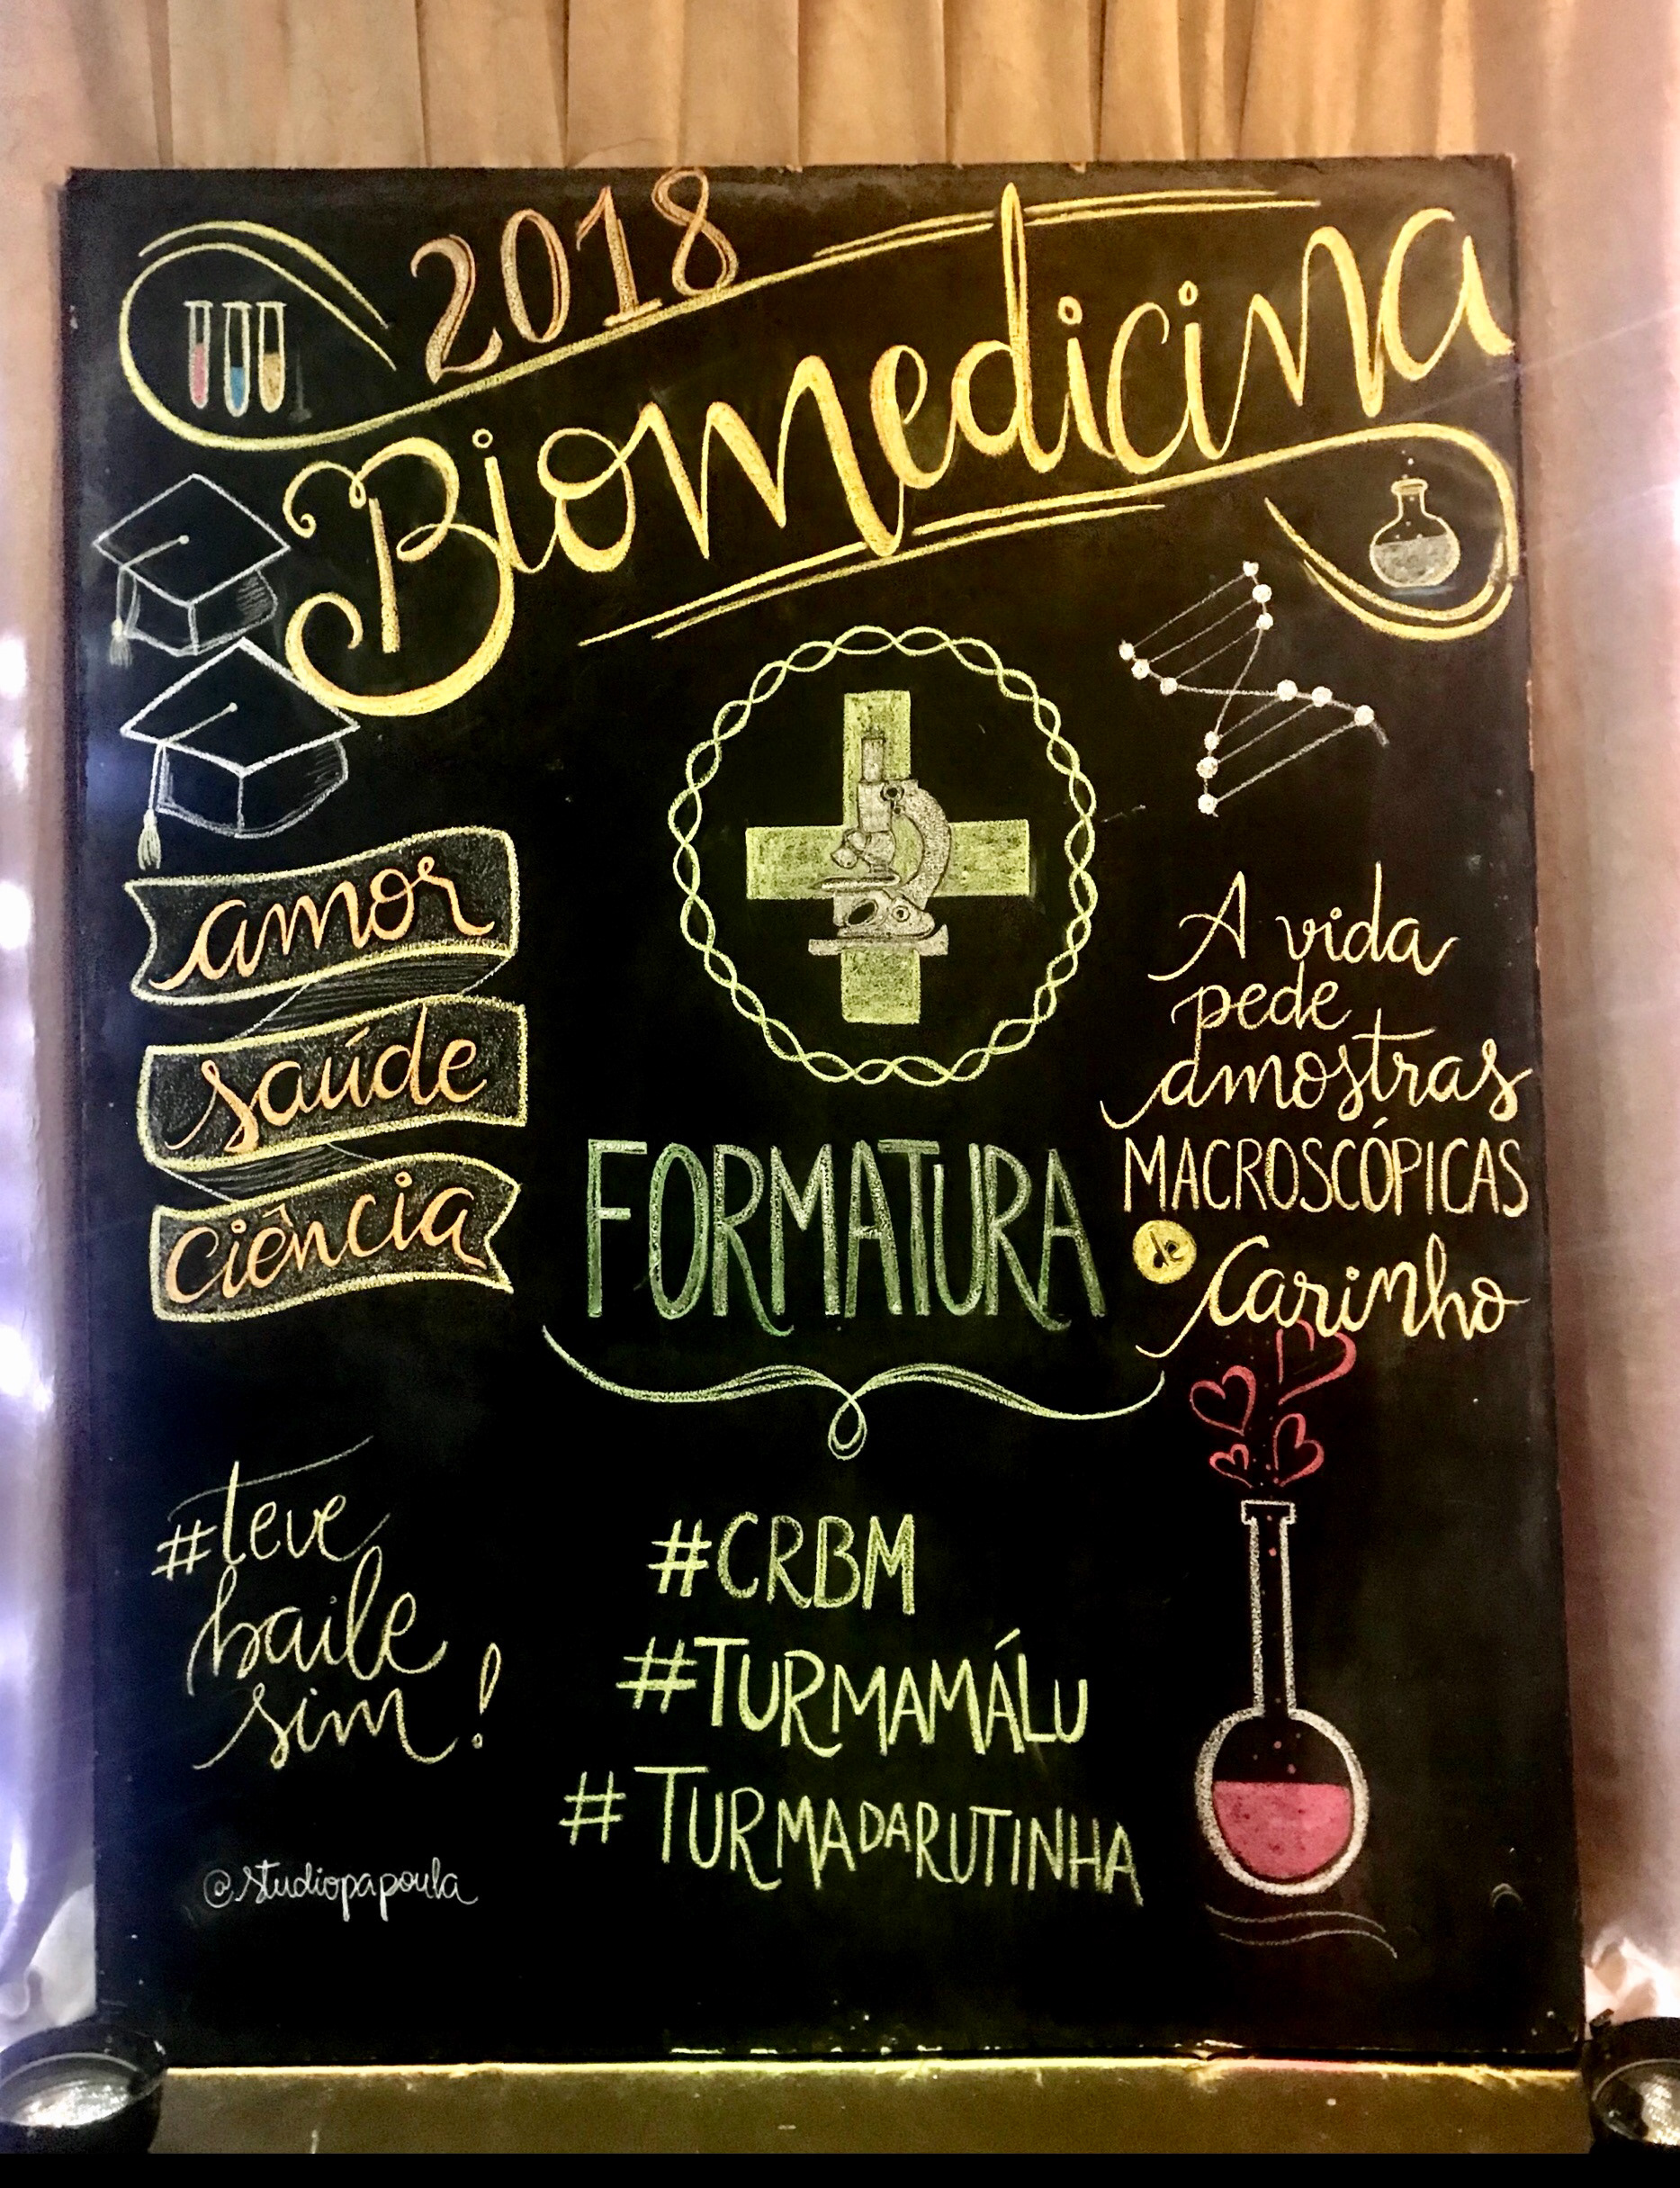 2018
Biomedicina
amor
saúde
ciência
A vida
pede
amostras
MACROSCÓPICAS
de
Carinho
FORMATURA
#teve
baile
sim!
#CRBM
#TURMAMÁLU
#TURMADARUTINHA
@studiopapoula